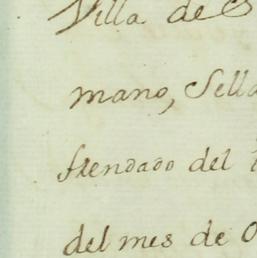 Villa de S
mano, Sella
frendado del
del mes de O